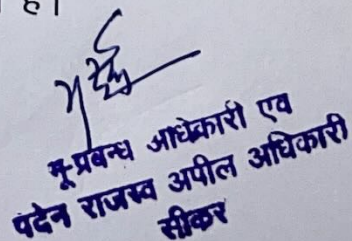 है।
भू-प्रबन्ध अधिकारी एवं
पदेन राजस्व अपील अधिकारी
सीकर